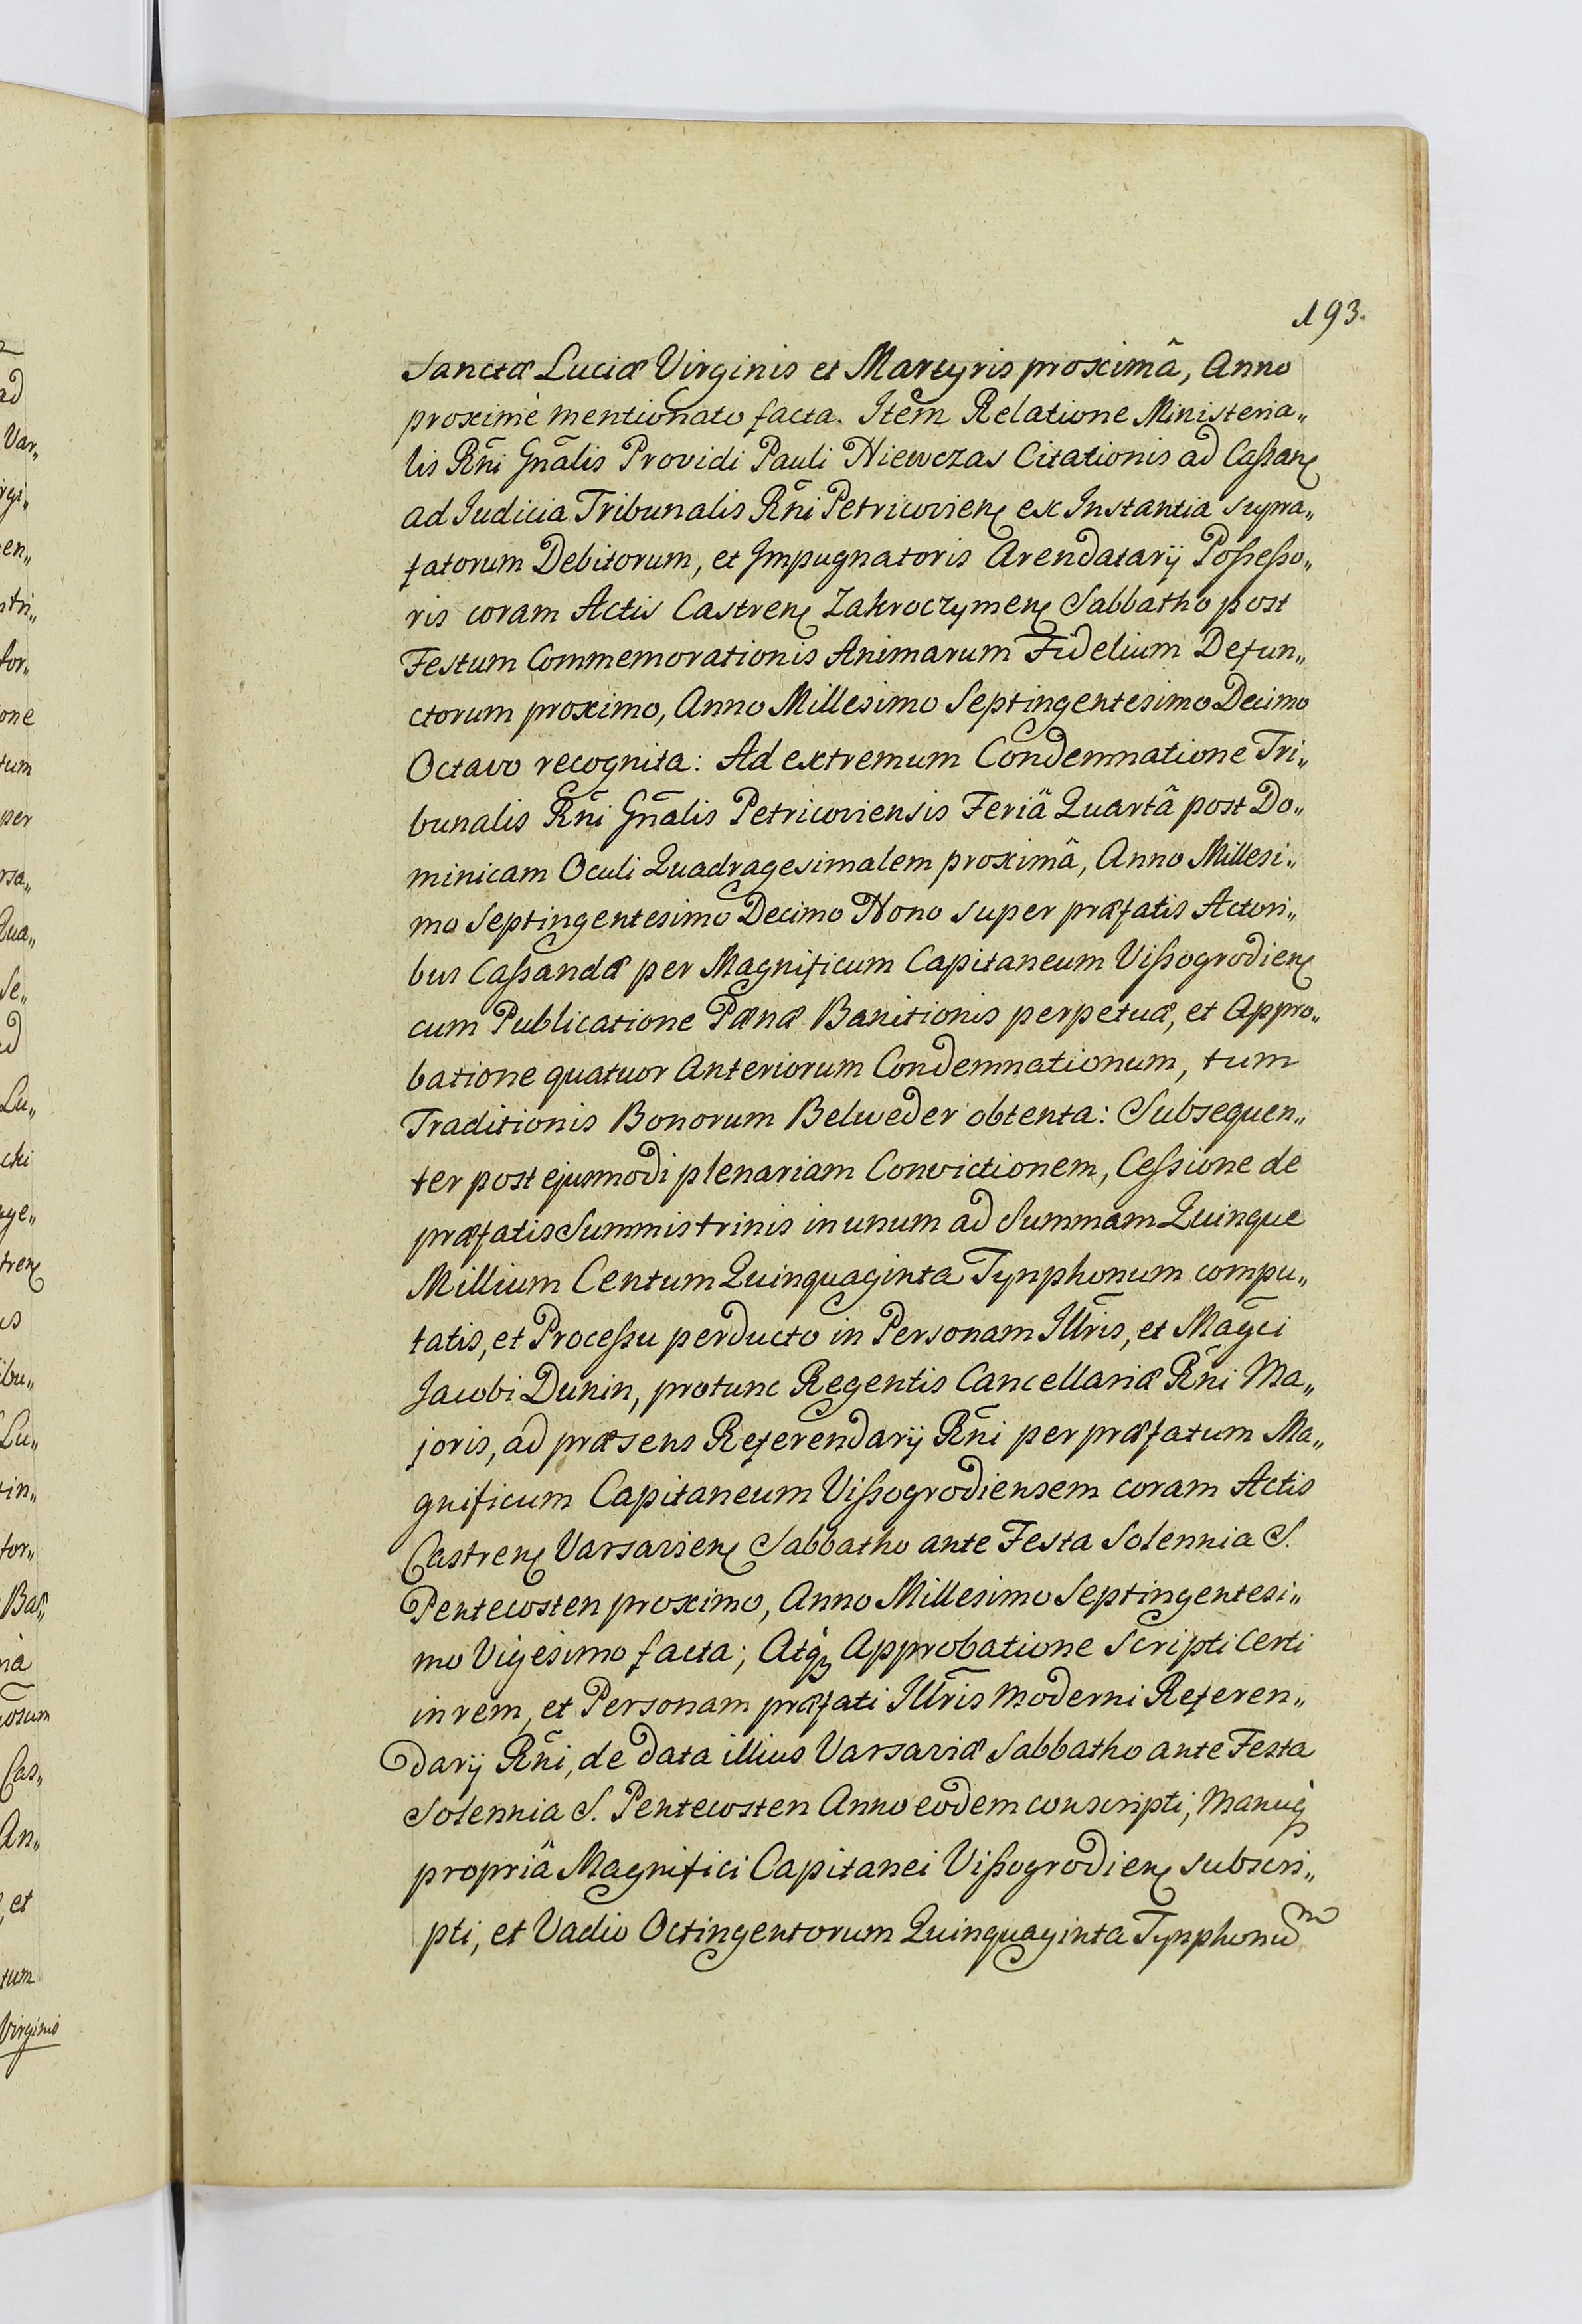 193.
Sanctæ Luciæ Virginis et Martyris proximâ, Anno
proximè mentionato facta. Item Relatione Ministeria„
lis Rñi Gñalis Providi Pauli Niewczas Citationis ad Caßanꝭ
ad Judicia Tribunalis Rñi Petricovienꝭ ex Instantia supra„
fatorum Debitorum, et Impugnatoris Arendatarij Poßeßo„
ris coram Actis Castrenꝭ Zakroczymenꝭ Sabbatho post
Festum Commemorationis Animarum Fidelium Defun„
ctorum proximo, Anno Millesimo Septingentesimo Decimo
Octavo recognita: Ad extremum Condemnatione Tri„
bunalis Rñi Gñalis Petricoviensis Feriâ Quartâ post Do„
minicam Oculi Quadragesimalem proximâ, Anno Millesi„
mo Septingentesimo Decimo Nono super præfatis Actori„
bus Caßandæ per Magnificum Capitaneum Vißogrodienꝭ
cum Publicatione Pœnæ Banitionis perpetuæ, et Appro„
batione quatuor Anteriorum Condemnationum, tum
Traditionis Bonorum Belweder obtenta: Subsequen„
ter post ejusmodi plenariam Convictionem, Ceßione de
præfatis Summis trinis in unum ad Summam Quinque
Millium Centum Quinquaginta Tynphonum compu„
tatis, et Proceßu perducto in Personam Illr̃is, et Magc̃i
Jacobi Dunin, protunc Regentis Cancellariæ Rñi Ma„
joris, ad præsens Referendarij Rñi per præfatum Ma„
gnificum Capitaneum Vißogrodiensem coram Actis
Castrenꝭ Varsavienꝭ Sabbatho ante Festa Solennia S.
Pentecosten proximo, Anno Millesimo Septingentesi„
mo Vigesimo facta; Atqꝫ Approbatione Scripti Certi
in rem, et Personam præfati Illr̃is Moderni Referen„
darij Rñi, de data illius Varsaviæ Sabbatho ante Festa
Solennia S. Pentecosten Anno eodem conscripti, Manuq́
propriâ Magnifici Capitanei Vißogrodienꝭ subscri„
pti, et Vadio Octingentorum Quinquaginta Tynphonuᵐ